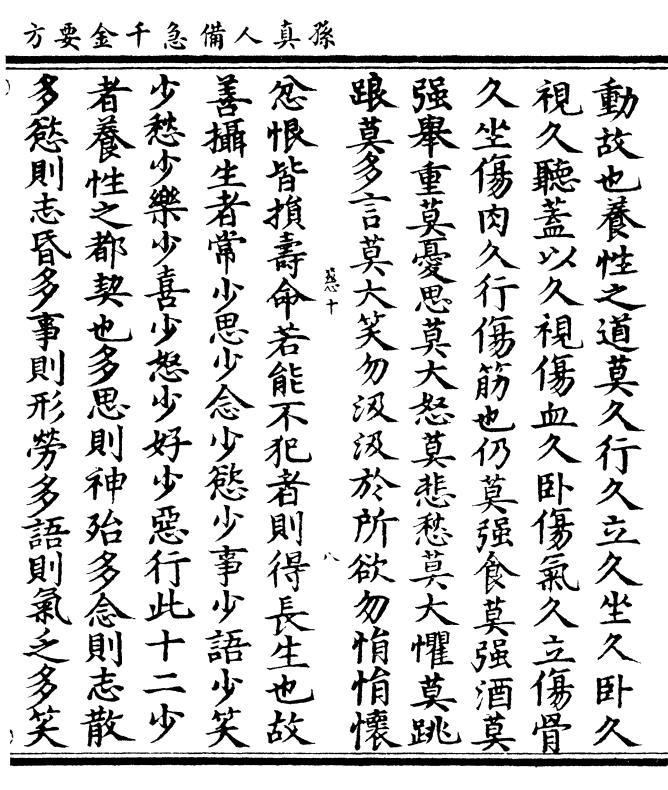 孫真人備急千金要方
動故也養性之道莫久行久立久坐久卧久
視久聽蓋以久視傷血久卧傷氣久立傷骨
久坐傷肉久行傷筋也仍莫强食莫强酒莫
强舉重莫憂思莫大怒莫悲愁莫大懼莫跳
踉莫多言莫大笑勿汲汲於所欲勿悁悁懷
忿恨皆損壽命若能不犯者則得長生也故
善攝生者常少思少念少慾少事少語少笑
少愁少樂少喜少怒少好少惡行此十二少
者養性之都契也多思則神殆多念則志散
多慾則志昏多事則形勞多語則氣乏多笑
十
八